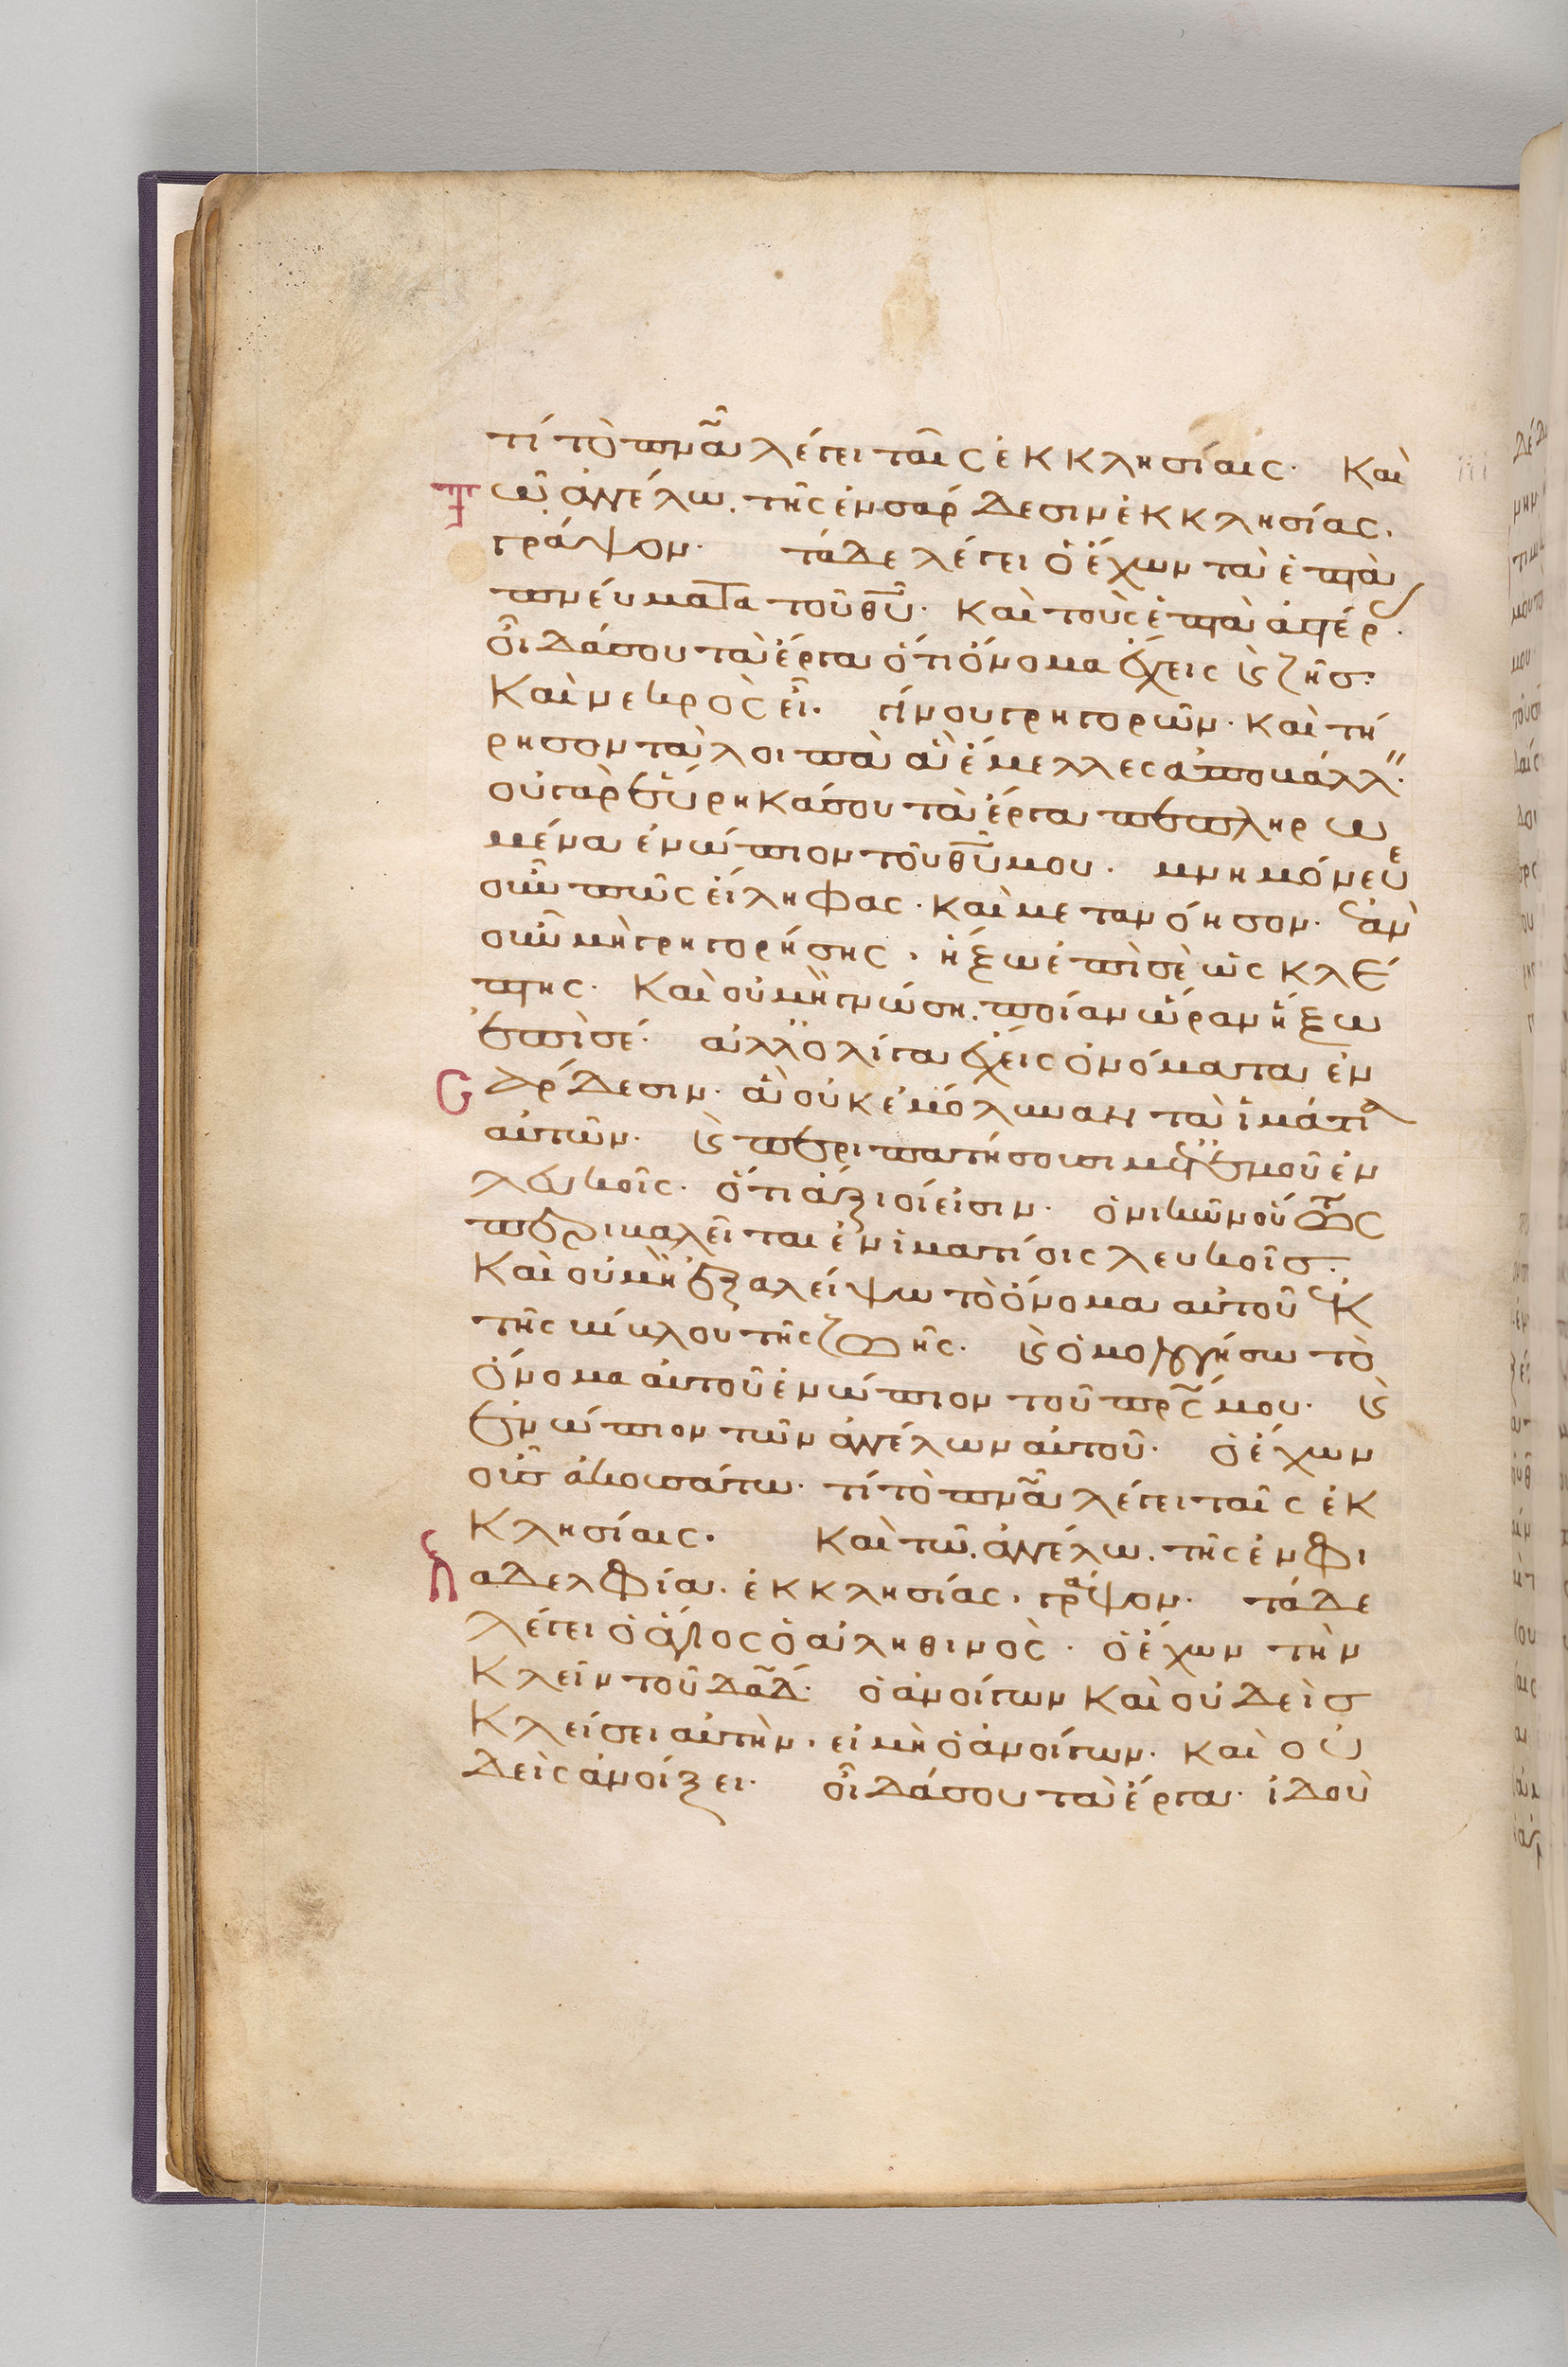 τί τὸ πνᾶ λέγει ταῖς ἐκκλησίαις· Καὶ
Τῶ ἀγγέλω τῆς ἐν σάρδεσιν ἐκκλησίας.
γράψον· τάδε λέγει ὁ ἔχων τὰ ἑπτὰ
πνεύματα τοῦ θῦ· Καὶ τοὺς ἑπτὰ ἀστέρς·
οἶδά σου τὰ ἔργα ὅτι ὄνομα ἔχεις ϗ ζῆσ·
Καὶ νεκρὸς εἶ· γίνου γρηγορῶν· καὶ τή
ρησον τὰ λοιπὰ ἃ ἔμελλες ἀποβάλλ̋·
οὐ γὰρ εὕρηκά σου τὰ ἔργα πεπληρω
μένα ἐνώπιον τοῦ θῦ μου· μνημόνευε
οὖν πῶς εἴληφας· καὶ μετανόησον· ἐὰν
οὖν μὴ γρηγορήσης, ἥξω ἐπὶ σὲ ὡς κλέ
πτης· Καὶ οὐ μὴ γνώση ποίαν ὥραν ἥξω
ἐπὶ σέ· ἀλλ' ὀλίγα ἔχεις ὀνόματα ἐν
Σάρδεσιν· ἃ οὐκ ἐμόλυναν τὰ ἱμάτια
αὐτῶν· ϗ περιπατήσουσι μετ' ἐμοῦ ἐν
λευκοῖς· ὅτι ἄξιοί εἰσιν· ὁ νικῶν οὕτως
περιβαλεῖται ἐν ἱματίοις λευκοῖσ·
Καὶ οὐ μὴ ἐξαλείψω τὸ ὄνομα αὐτοῦ ἐκ
τῆς βίβλου τῆς ζωῆς· ϗ ὁμολογήσω τὸ
ὄνομα αὐτοῦ ἐνώπιον τοῦ πρς μου· ϗ
ἐνώπιον τῶν ἀγγέλων αὐτοῦ· ὁ ἔχων
οὖς ἀκουσάτω· τί τὸ πνᾶ λέγει ταῖς ἐκ
κλησίαις· Καὶ τῶ ἀγγέλω τῆς ἐν φι
λαδελφία ἐκκλησίας, γράψον· τάδε
λέγει ὁ ἅγιος ὁ ἀληθινὸς· ὁ ἔχων τὴν
Κλεῖν τοῦ δᾶδ· ὁ ἀνοίγων Καὶ οὐδεὶσ
Κλείσει αὐτὴν, εἰ μὴ ὁ ἀνοίγων· καὶ οὐ
δεὶς ἀνοίξει· οἶδά σου τὰ ἔργα· ἰδοὺ